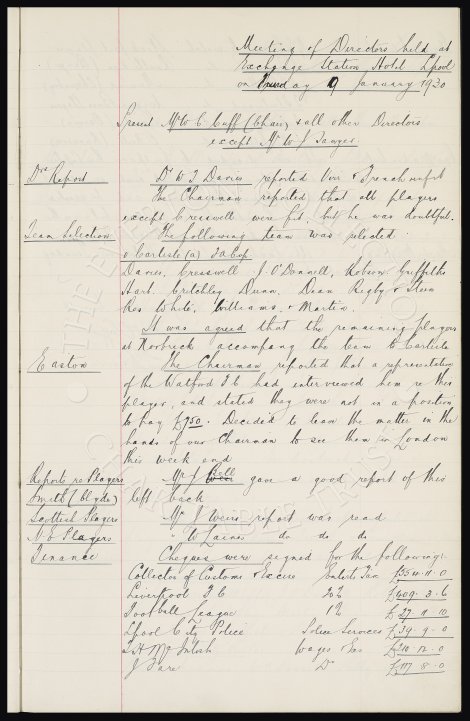 Meeting of Directors held at
Exchange Station Hotel Lpool
on Thursday 9 January 1930
Present Mr W C Cuff (Chair) & all other Directors
except Mr W J Sawyer
Drs Report
Dr W J Davies reported Torr & French unfit
The Chairman reported that all players
except Cresswell were fit, but he was doubtful.
Team Selection
The following team was selected
v Carlisle (a) FA Cup
Davies, Cresswell J. O'Donnell, Robson Griffiths
Hart. Critchley Dunn, Dean Rigby & Stein
Res White, Williams, & Martin.
It was agreed that the remaining players
at Norbreck accompany the team to Carlisle
Easton
The Chairman reported that a representative
of the Watford FC had interviewed him re this
player, and stated they were not in a position
to pay £750. Decided to leave the matter in the
hands of our Chairman to see them in London
this week end
Reports re Players
Smith (Clyde)
Mr J Bell gave a good report of this
left back
Scottish Players
Mr J Weirs report was read
N.E Players
" W Laines do do do
Finance
Cheques were signed for the following:
Collector of Customs & Excise Entert. Tax £554.11.0
Liverpool FC £409.3.6
Football League 1% £37 11 10
Lpool City Police Police Services £39 9.0
T.H. McIntosh Wages £210 12.0
J Fare Do £117 8.0